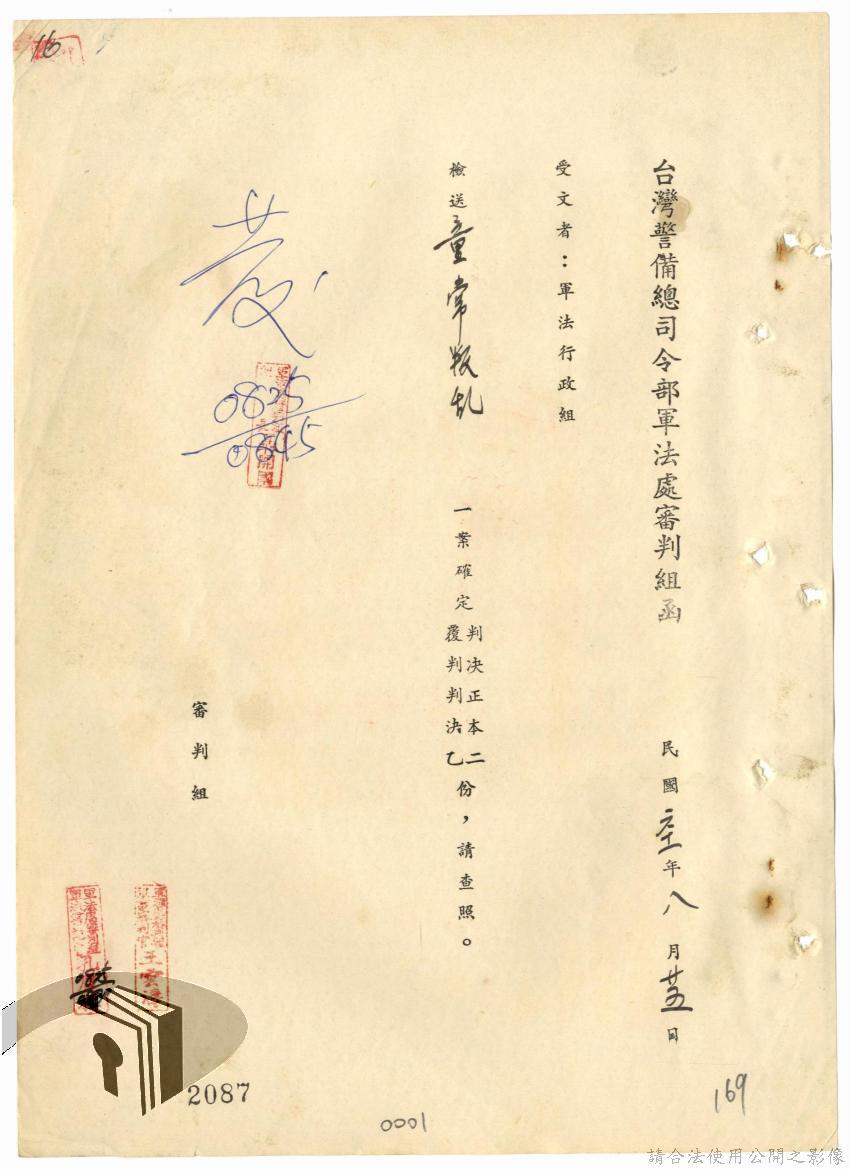 台灣警備總司令部軍法處審判組函
民國六十一年八月廿五日
受文者：軍法行政組
檢送童常叛乱一案確定判決正本二
覆判判決乙
份，請查照。
審判組
發
0825
0845
16
2087
0001
169
請合法使用公開之影像